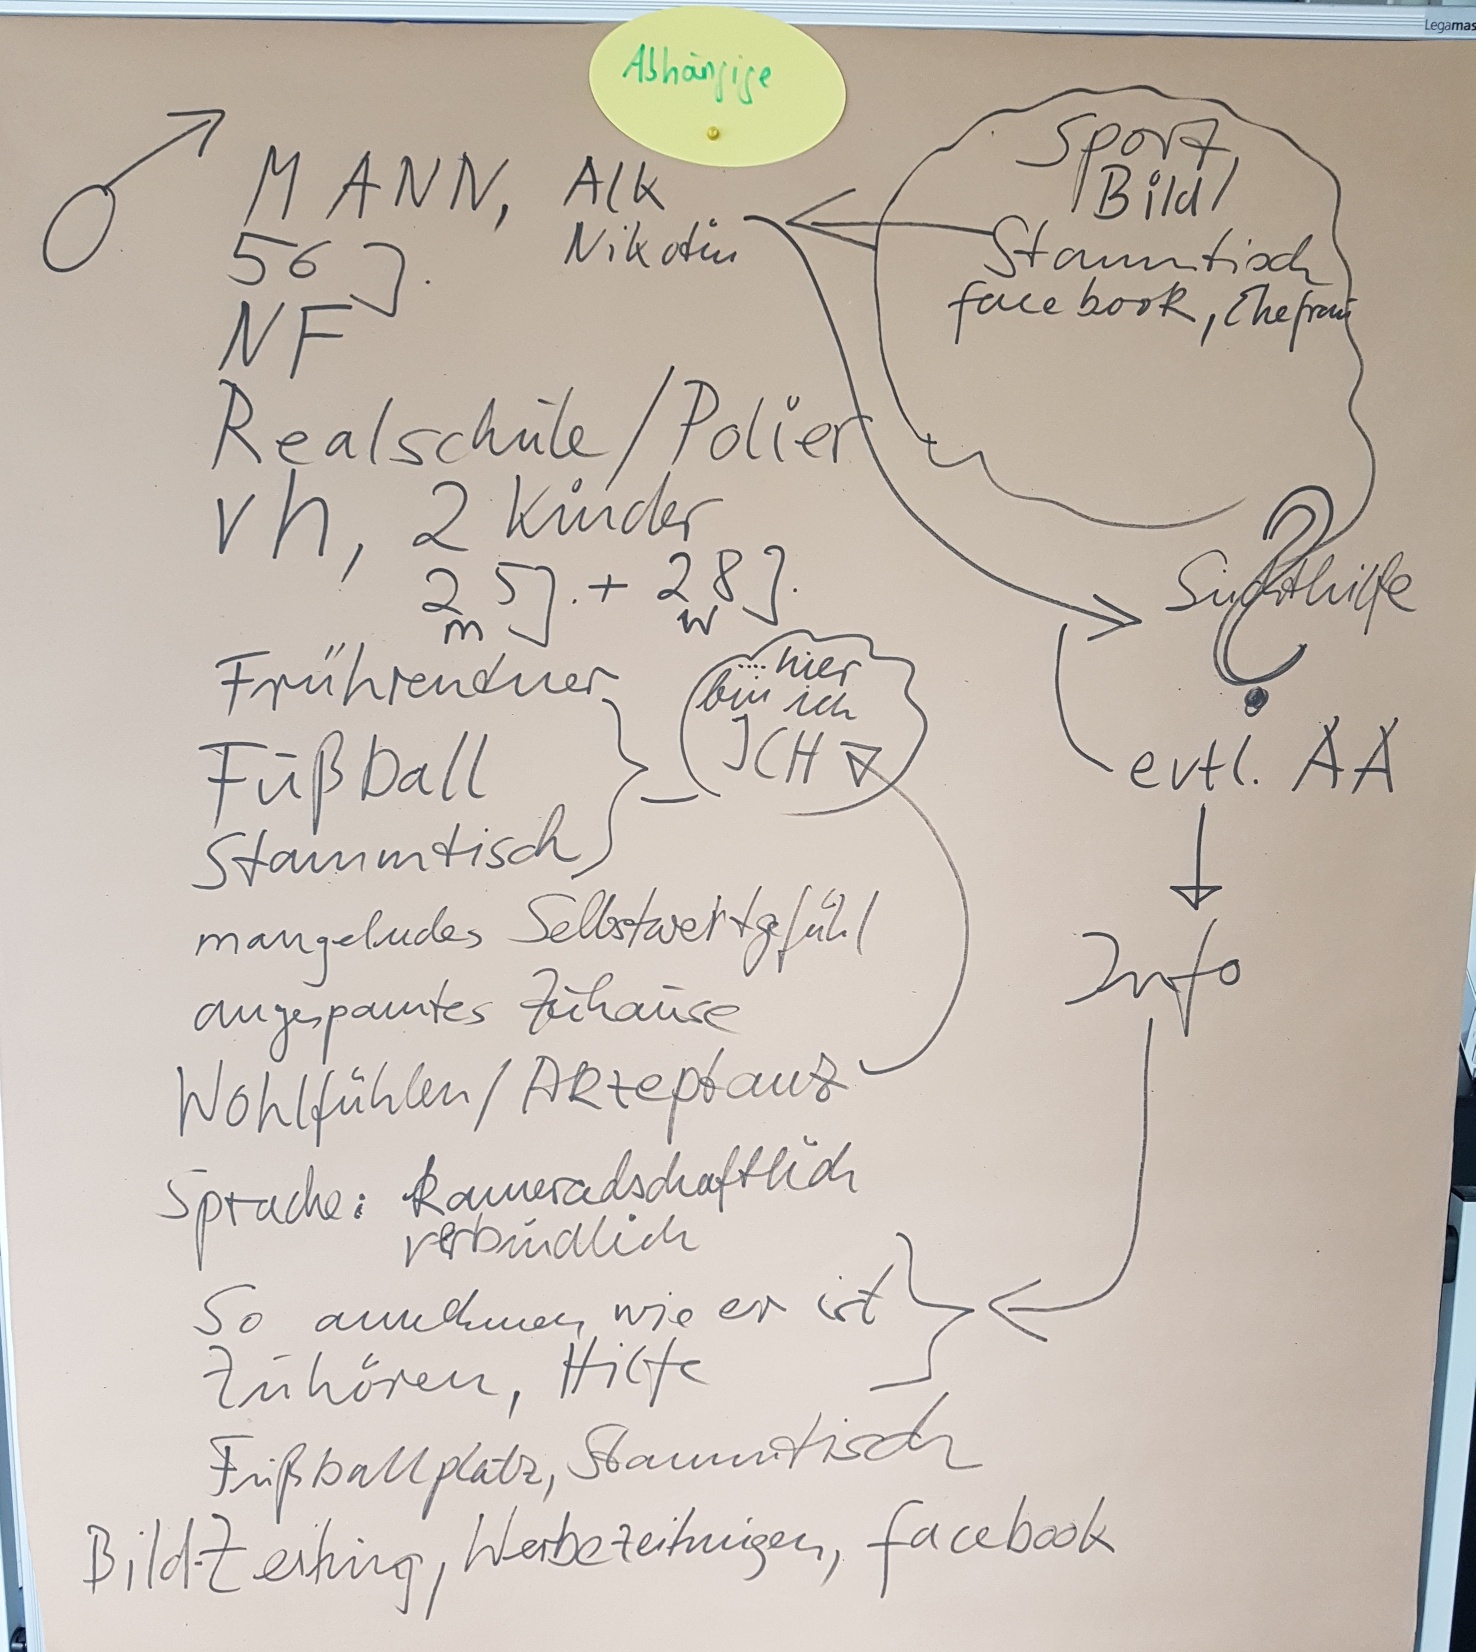 Legamas
Abhängige
MANN, Alk
Nikotin
56 J.
NF
Realschule / Polier
vh, 2 Kinder
25 J. + 28 J.
m w
Frührentner
Fußball
Stammtisch
.... hier
bin ich
ICH
mangelndes Selbstwertgefühl
angespanntes Zuhause
Wohlfühlen / Akzeptanz
Sprache: kameradschaftlich
verbindlich
So annehmen, wie er ist
Zuhören, Hilfe
Fußballplatz, Stammtisch
Bild-Zeitung, Werbezeitungen, facebook
Sport,
Bild,
Stammtisch
facebook, Ehefrau
Suchthilfe
?
evtl. AA
Info